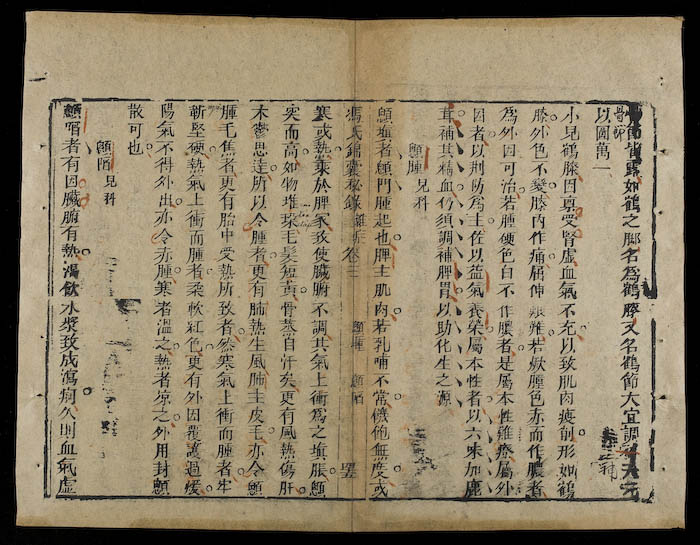 骨節皆露如鶴之脚名為鶴膝又名鶴節大宜調補天元
以圖萬一
小兒鶴膝因稟受腎虛血氣不充以致肌肉瘦削形如鶴
膝外色不變膝内作痛屈伸艱難若腫色赤而作膿者
為外因可治若腫硬色白不作膿者是屬本性難療屬外
因者以荆防為主佐以益氣養榮屬本性者以六味加鹿
茸補其精血仍須調補脾胃以助化生之源
顖腫 兒科
顖堆者顖門腫起也脾主肌肉若乳哺不常饑飽無度或
馮氏錦囊秘錄 雜症 卷三 顖腫 顖陷
寒或熱乘於脾家致使臟腑不調其氣上衝為之填脹顖
突而高如物堆垛毛髮短黄骨蒸自汗矣更有風熱傷肝
木鬱思達所以令腫者更有肺熱生風肺主皮毛亦令顖
腫毛焦者更有胎中受熱所致者然寒氣上衝而腫者牢
靳堅硬熱氣上衝而腫者柔軟紅色更有外因覆護過煖
陽氣不得外出亦令赤腫寒者溫之熱者凉之外用封顖
散可也
顖陷 兒科
顖陷者有因臟腑有熱渴飲水漿致成瀉痢久則血氣虛